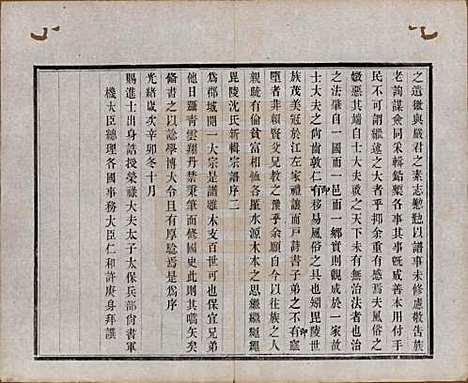 之遺徽與嚴君之素志懃懃以譜事未修慮敬告族
老詢謀僉同釆輯鉛槧各事其事既威善本用付手
民不可謂繼述之大者乎抑余重有感夫風俗之
媺惡其端自士大夫始先王之天下未有無治法者也治
之法肇自一國而一邑而一鄉實則觀成於一家故
士大夫之尚齒敦仁有移易風俗之具也矧毘陵世
族茂美冠於江左家禮讓而戶詩書子弟之不有窳
墮者非賴賢父兄教之豫乎余願自今以往族之人
親疏有倫貧富相保各羣水源木本之思繼繼繩繩
毘陵沈氏新輯宗譜序二
為郡城開一大宗是譜雖本支百世可也保宜兄弟
他日翔步青雲丹禁秉筆而修國史此則其嚆矢矣
脩書之以諗學博大令且有厚騐焉是為序
光緒歲次辛卯冬十月
賜進士出身誥授榮祿大夫太子太保兵部尚書軍
機大臣總理各國事務大臣仁和許庚身拜譔